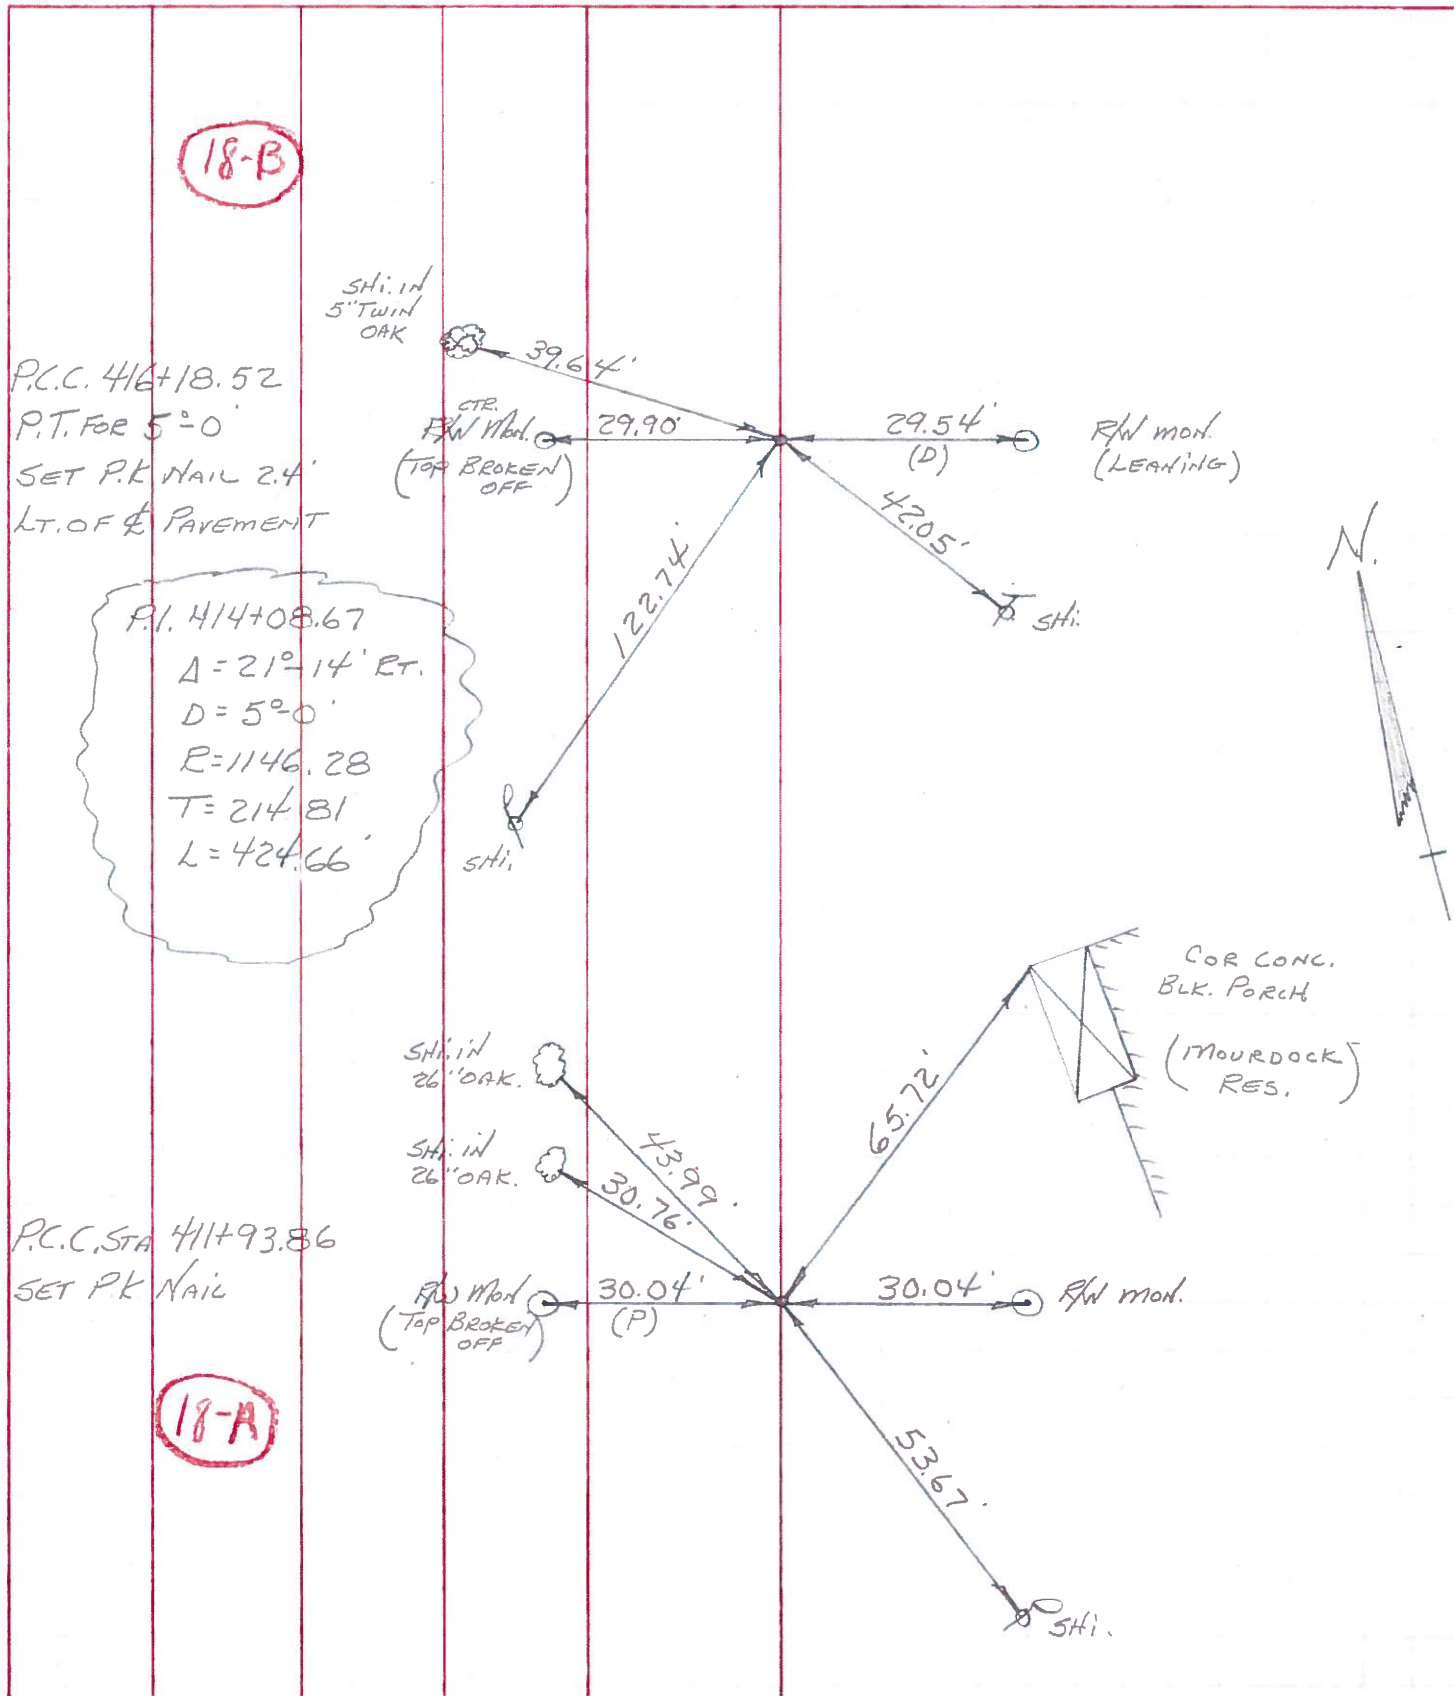 18-B
SHi. IN
5" TWIN
OAK
39.64'
P.C.C. 416+18.52
P.T. FOR 5°-0'
SET P.K NAIL 2.4'
LT. OF ℄ PAVEMENT
CTR.
R/W MON.
(TOP BROKEN
OFF)
29.90'
29.54'
(D)
R/W MON.
(LEANING)
42.05'
SHi.
122.74'
SHi.
N.
P.I. 414+08.67
Δ = 21°-14' RT.
D = 5°-0'
R = 1146.28
T = 214.81
L = 424.66'
COR CONC.
BLK. PORCH
(MOURDOCK)
RES.
65.72'
SHi. IN
26" OAK.
43.99'
SHi. IN
26" OAK.
30.76'
P.C.C. STA 411+93.86
SET P.K NAIL
R/W MON
(TOP BROKEN
OFF)
30.04'
(P)
30.04'
R/W MON.
18-A
53.67'
SHi.